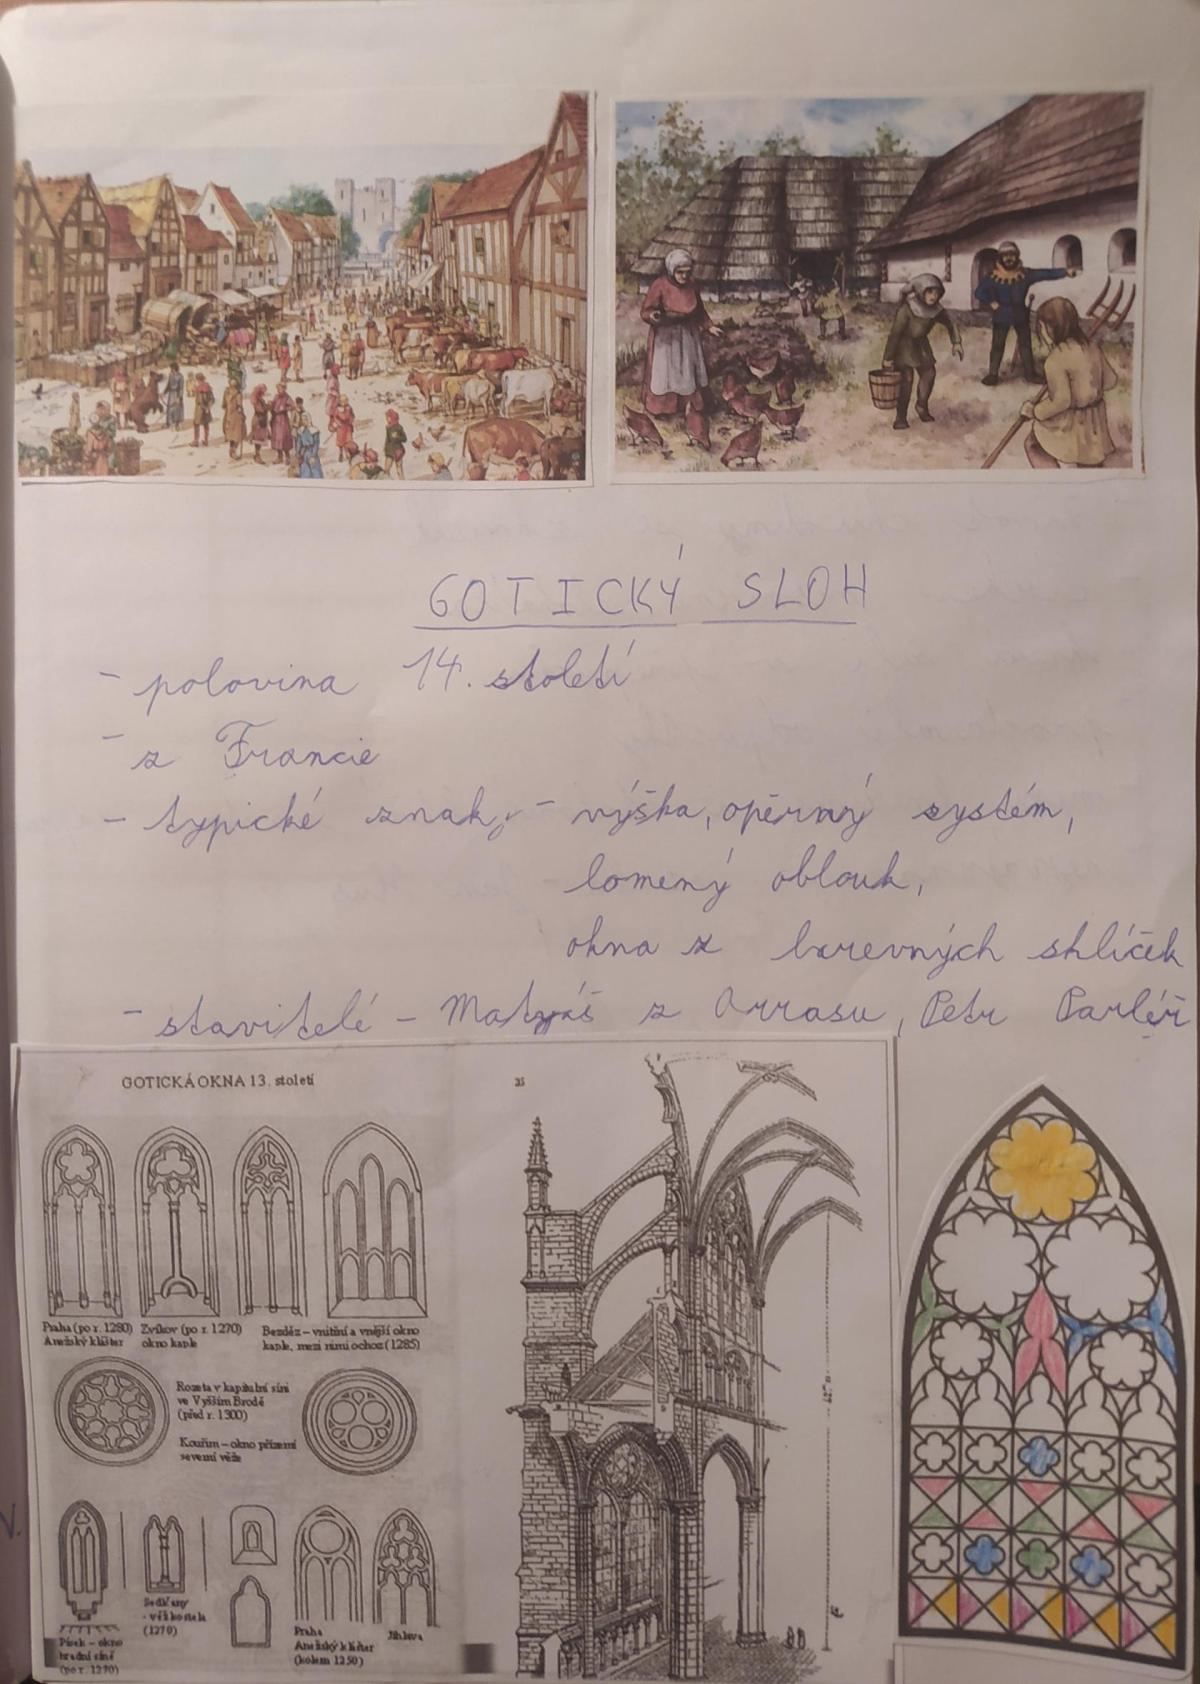 GOTICKÝ SLOH
- polovina 14. století
- z Francie
- typické znaky - výška, opěrný systém,
lomený oblouk,
okna z barevných sklíček
- stavitelé - Matyáš z Arrasu, Petr Parléř
GOTICKÁ OKNA 13. století
35
Praha (po r. 1280)
Anežský klášter
Zvíkov (po r. 1270)
okno kaple
Bezděz – vnitřní a vnější okno
kaple, mezi nimi ochoz (1285)
Rozeta v kapitulní síni
ve Vyšším Brodě
(před r. 1300)
Kouřim – okno přízemí
severní věže
Písek – okno
hradní síně
(po r. 1270)
Sedlčany
- věž kostela
(1270)
Praha
Anežský klášter
(kolem 1250)
Jihlava
V.